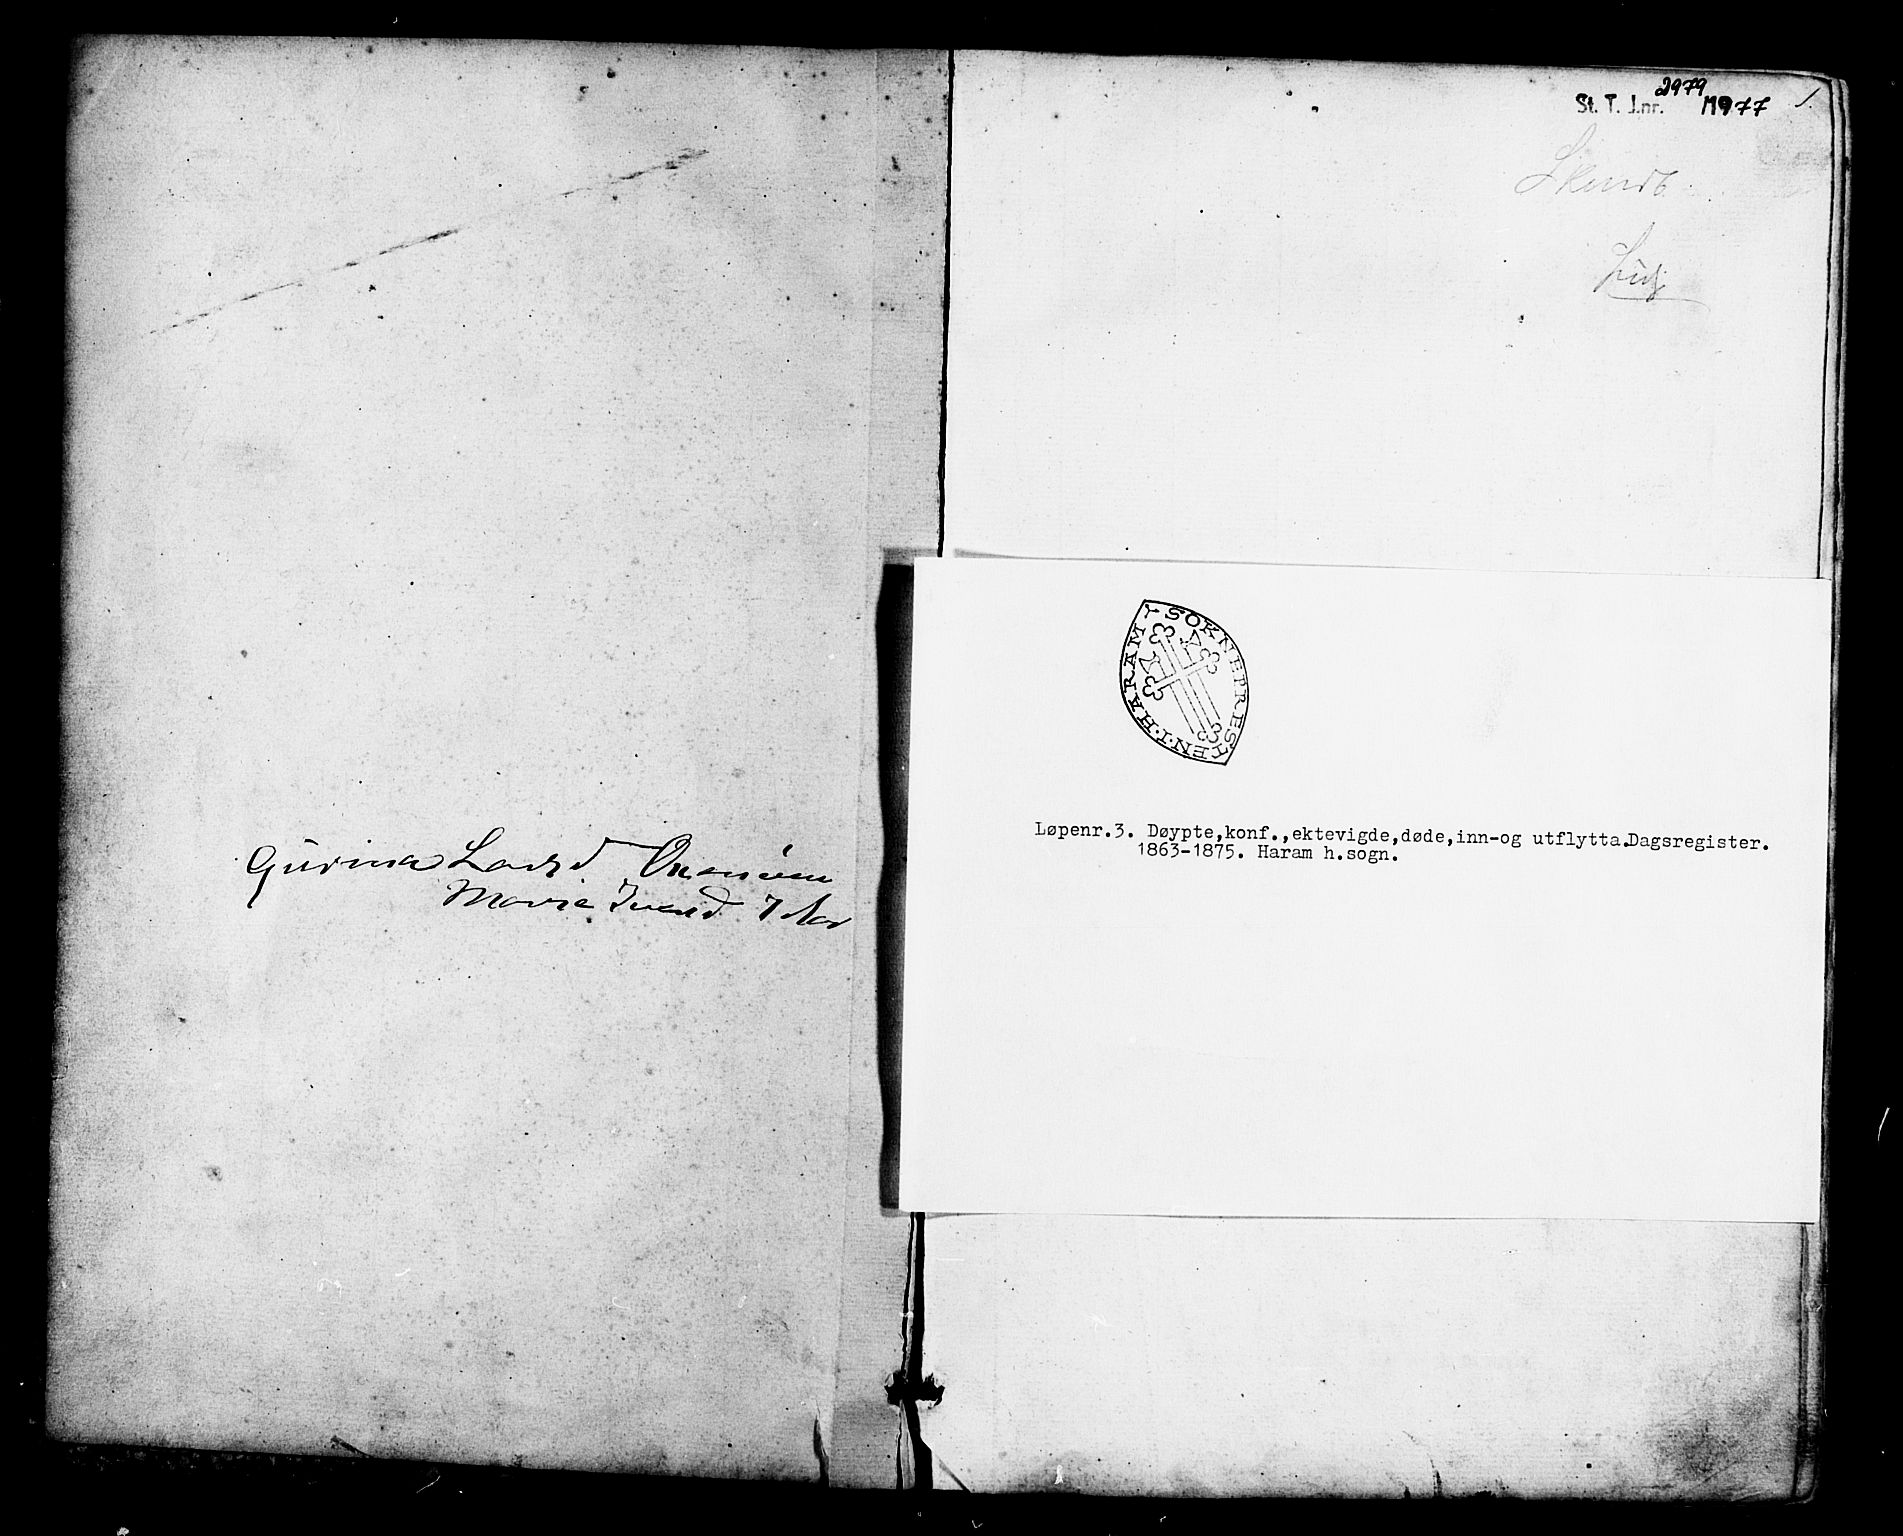 Gurina Larsd
Marie Iversd
2979
St. T. J.nr. M977
1.
SOKNEPRESTEN·I·HARAM
Løpenr.3. Døypte,konf.,ektevigde,døde,inn-og utflytta.Dagsregister.
1863-1875. Haram h.sogn.